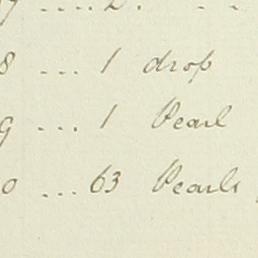 7 .... 2. . .
8 .... 1 drop
9 .... 1 Pearl
0 ... 63 Pearls